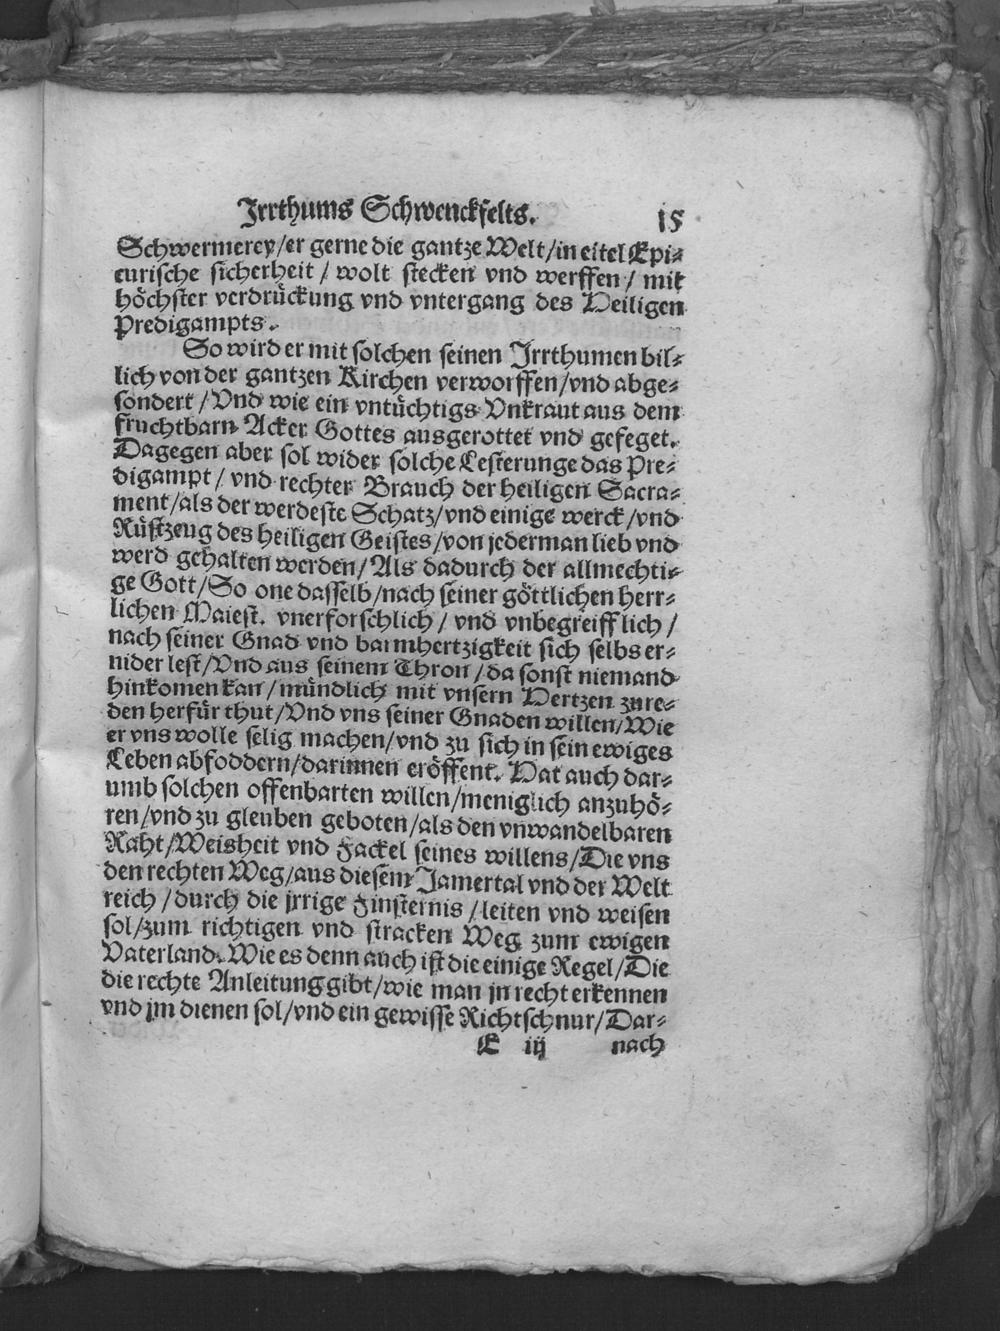 Jrrthums Schwenckfelts. 15
Schwermerey/er gerne die gantze Welt/in eitel Epi-
curische sicherheit / wolt stecken vnd werffen / mit
höchster verdrückung vnd vntergang des Heiligen
Predigampts.
So wird er mit solchen seinen Jrrthumen bil-
lich von der gantzen Kirchen verworffen/vnd abge-
sondert /Vnd wie ein vntüchtigs Vnkraut aus dem
fruchtbarn Acker Gottes ausgerottet vnd gefeget.
Dagegen aber sol wider solche Lesterunge das Pre-
digampt / vnd rechter Brauch der heiligen Sacra-
ment/als der werdeste Schatz/vnd einige werck/vnd
Rüstzeug des heiligen Geistes/von jederman lieb vnd
werd gehalten werden/Als dadurch der allmechti-
ge Gott/So one dasselb/nach seiner göttlichen herr-
lichen Maiest. vnerforschlich / vnd vnbegreifflich /
nach seiner Gnad vnd barmhertzigkeit sich selbs er-
nider lest/Vnd aus seinem Thron /da sonst niemand
hinkomen kan/mündlich mit vnsern Hertzen zu re-
den herfür thut/Vnd vns seiner Gnaden willen/Wie
er vns wolle selig machen/vnd zu sich in sein ewiges
Leben abfoddern/darinnen eröffent. Hat auch dar-
umb solchen offenbarten willen/meniglich anzuhö-
ren/vnd zu gleuben geboten/als den vnwandelbaren
Raht/Weisheit vnd Fackel seines willens/Die vns
den rechten Weg/aus diesem Jamertal vnd der Welt
reich /durch die jrrige Finsternis /leiten vnd weisen
sol/zum richtigen vnd stracken Weg zum ewigen
Vaterland. Wie es denn auch ist die einige Regel/Die
die rechte Anleitung gibt/wie man jn recht erkennen
vnd jm dienen sol/vnd ein gewisse Richtschnur/Dar-
E iij nach